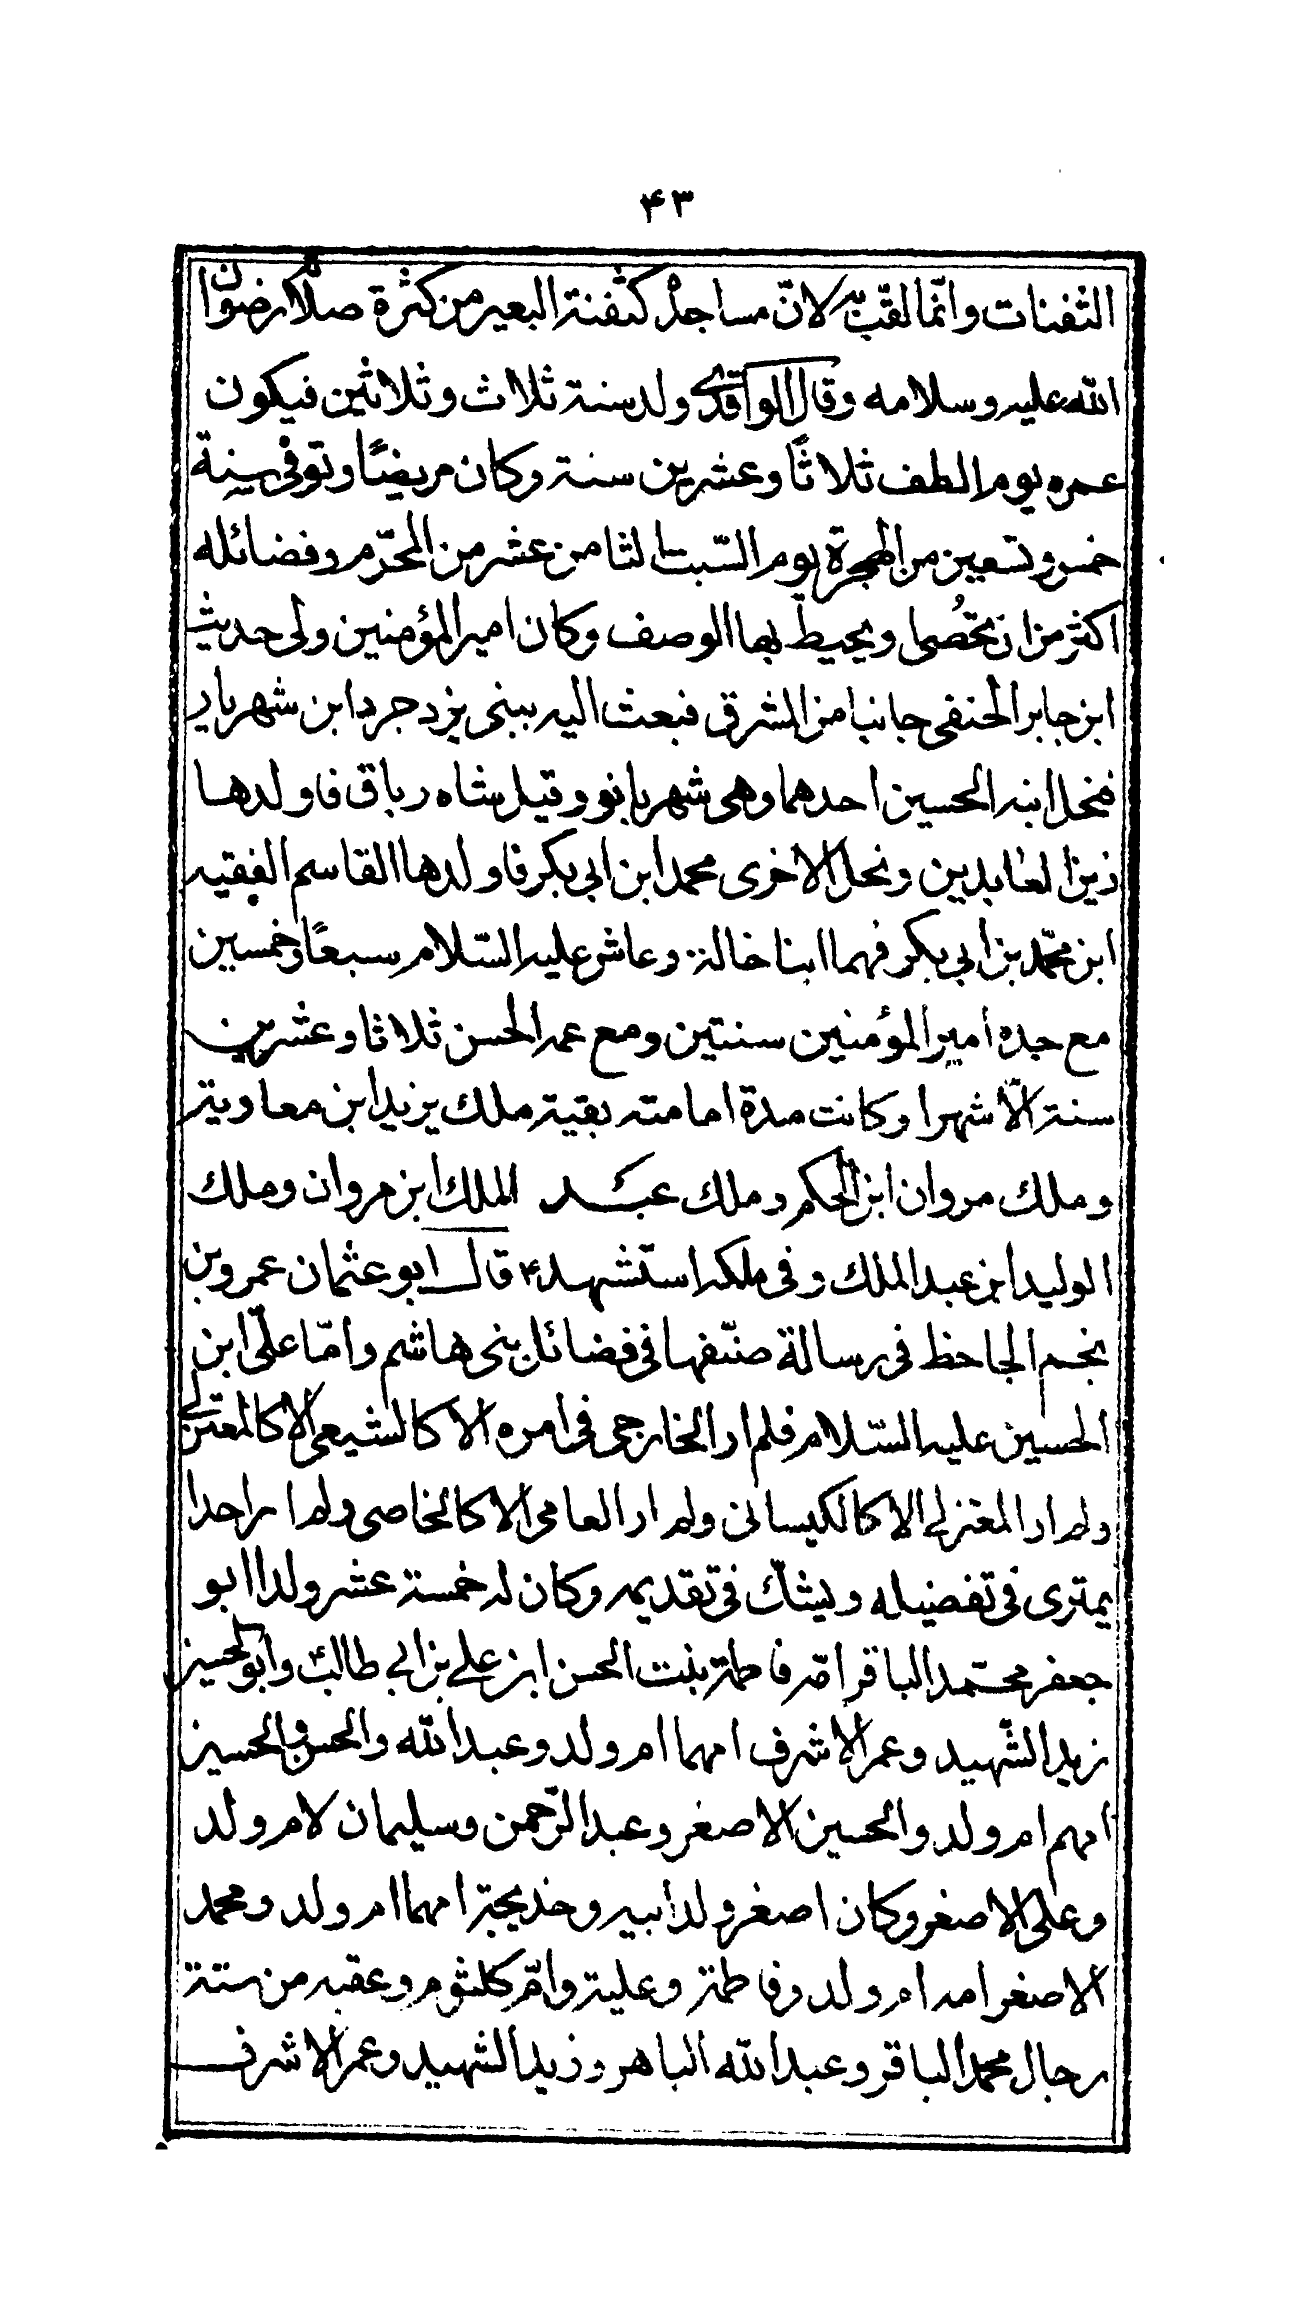 ۴۳
الثفنات وانّما لقّب به لانّ مساجده كثفنة البعير من كثرة صلاته رضوان
الله عليه وسلامه وقال الواقدى ولد سنة ثلاث وثلاثين فيكون
عمره يوم الطف ثلاثًا وعشرين سنة وكان مريضًا وتوفى سنة
خمس وتسعين من الهجرة يوم السّبت لثامن عشر من المحرّم وفضائله
اكثر من ان تحصى او يحيط بها الوصف وكان امير المؤمنين ولى حديث
ابن جابر الحنفى جانبا من المشرق فبعث اليه ببنتى يزدجرد ابن شهريار
فنحل ابنه الحسين احدهما وهى شهربانو وقيل شاه رباق فاولدها
زين العابدين ونحل الاخرى محمد ابن ابى بكر فاولدها القاسم الفقيه
ابن محمّد بن ابى بكر فهما ابنا خالة وعاش عليه السّلام سبعًا وخمسين
مع جده امير المؤمنين سنتين ومع عمه الحسن ثلاثا وعشرين
سنة الّا شهرا وكانت مدة امامته بقية ملك يزيد ابن معاوية
وملك مروان ابن الحكم وملك عبد الملك ابن مروان وملك
الوليد ابن عبد الملك وفى ملكه استشهد ۴ قال ابو عثمان عمرو بن
بخم الجاحظ فى رسالة صنّفها فى فضائل بنى هاشم وامّا علىّ ابن
الحسين عليه السّلام فلم ار الخارجى فى امره الا كالشيعى الا كالمعتزلى
ولم ار المعتزلى الا كالكيسانى ولم ار العامى الا كالخاصى ولم ار احدا
يمترى فى تفضيله ويشكّ فى تقديمه وكان له خمسة عشر ولدا ابو
جعفر محمّد الباقر امّه فاطمة بنت الحسن ابن على بن ابى طالب ۴ وابو الحسين
زيد الشّهيد وعمر الاشرف امهما ام ولد وعبد الله والحسن والحسين
امهم ام ولد والحسين الاصغر وعبد الرّحمن وسليمان لام ولد
وعلى الاصغر وكان اصغر ولد ابيه وخديجة امهما ام ولد ومحمد
الاصغر امه ام ولد وفاطمة وعلية وامّ كلثوم وعقبه من ستة
رجال محمد الباقر وعبد الله الباهر وزيد الشهيد وعمر الاشرف